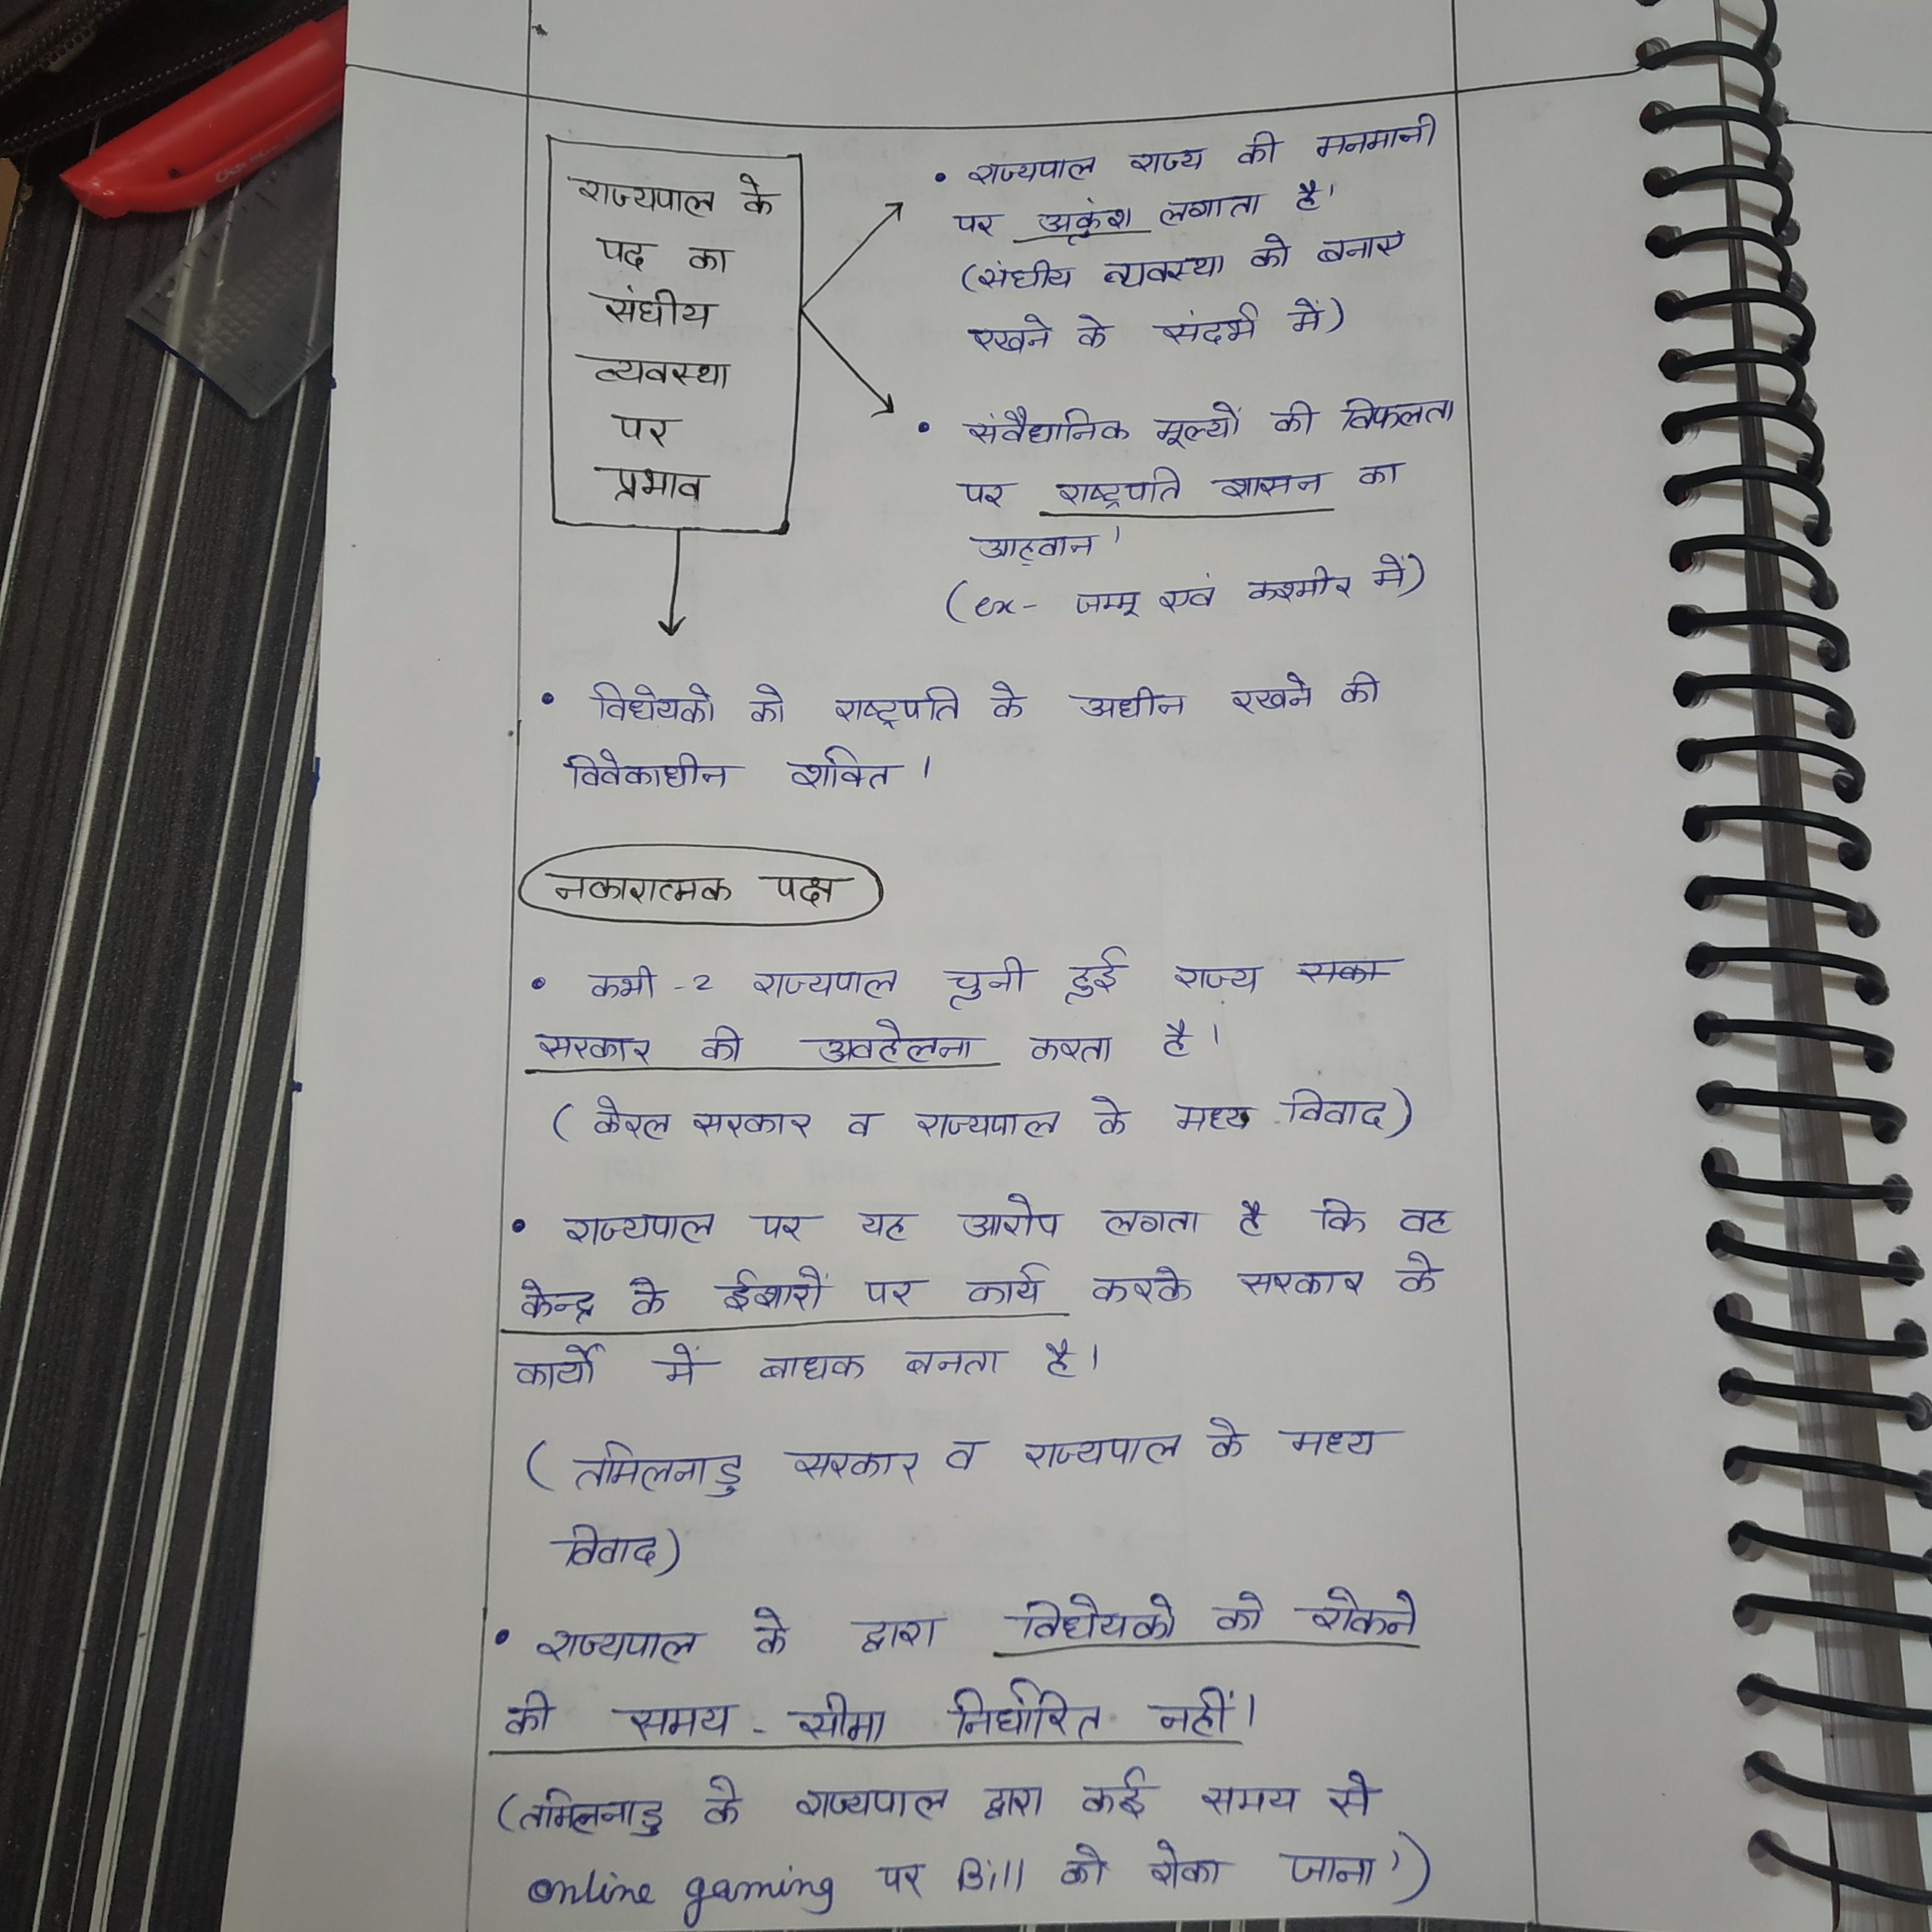 राज्यपाल के
पद का
संघीय
व्यवस्था
पर
प्रभाव
• राज्यपाल राज्य की मनमानी
पर अकुंश लगाता है।
(संघीय व्यवस्था को बनाए
रखने के संदर्भ में)
• संवैधानिक मूल्यों की विफलता
पर राष्ट्रपति शासन का
आह्वान।
(ex- जम्मू एवं कश्मीर में)
• विधेयको को राष्ट्रपति के अधीन रखने की
विवेकाधीन शक्ति।
नकारात्मक पक्ष
• कभी-2 राज्यपाल चुनी हुई राज्य सका
सरकार की अवहेलना करता है।
(केरल सरकार व राज्यपाल के मध्य विवाद)
• राज्यपाल पर यह आरोप लगता है कि वह
केन्द्र के ईशारों पर कार्य करके सरकार के
कार्यो में बाधक बनता है।
(तमिलनाडु सरकार व राज्यपाल के मध्य
विवाद)
• राज्यपाल के द्वारा विधेयको को रोकने
की समय-सीमा निर्धारित नहीं।
(तमिलनाडु के राज्यपाल द्वारा कई समय से
online gaming पर Bill को रोका जाना।)